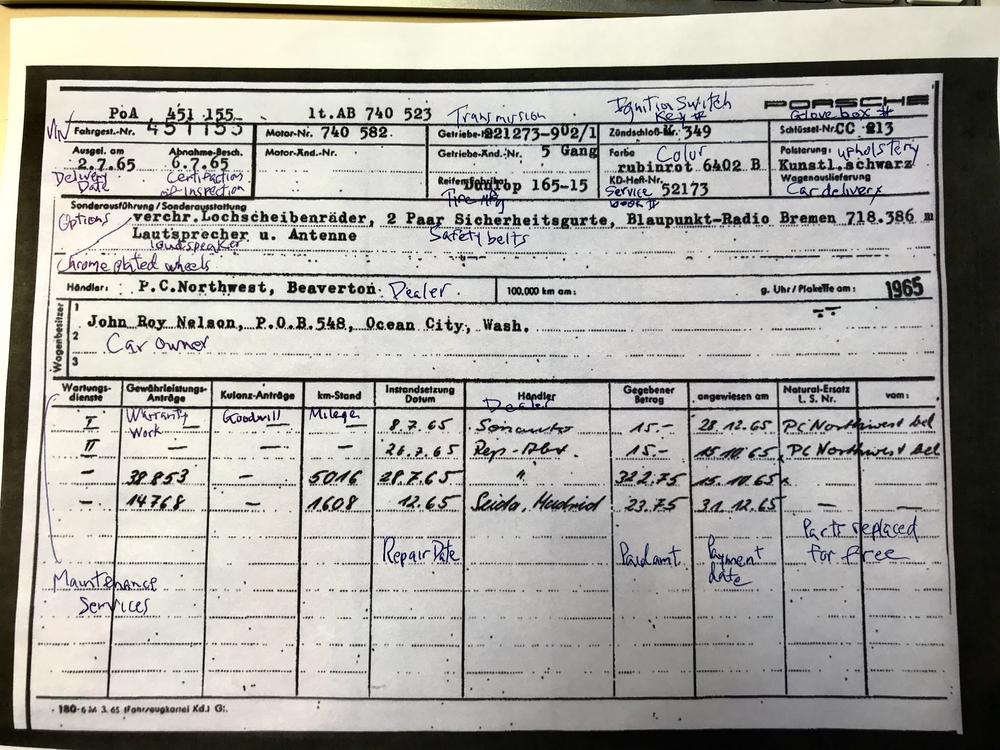 PoA 451 155 lt.AB 740 523 Transmission Ignition Switch Key # PORSCHE Glove box #
VIN Fahrgest.-Nr. 451155 Motor-Nr. 740 582 Getriebe-Nr. 221273-902/1 Zündschloß-Nr. K 349 Schlüssel-Nr. CC 213
Ausgel. am 2.7.65 Abnahme-Besch. 6.7.65 Motor-Änd.-Nr. Getriebe-Änd.-Nr. 5 Gang Farbe Color rubinrot 6402 B Polsterung: upholstery Kunstl.schwarz
Delivery Date Certification of Inspection Reifenfabrikat Dunlop 165-15 Tire Mfg KD-Heft-Nr. 52173 Service book # Wagenauslieferung Car delivery
Sonderausführung / Sonderausstattung
Options verchr.Lochscheibenräder, 2 Paar Sicherheitsgurte, Blaupunkt-Radio Bremen 718.386 m
Lautsprecher u. Antenne Safety belts
loudspeaker
Chrome plated wheels
Händler: P.C.Northwest, Beaverton Dealer 100.000 km am: g. Uhr / Plakette am: 1965
Wagenbesitzer
1 John Roy Nelson, P.O.B.548, Ocean City, Wash.
2 Car owner
3
Wartungsdienste Gewährleistungs-Anträge Kulanz-Anträge km-Stand Instandsetzung Datum Händler Gegebener Betrag angewiesen am Natural-Ersatz L. S. Nr. vom:
Warranty Work Goodwill Mileage Dealer
I — — 8.7.65 15.- 28.12.65 PC Northwest bel
II — — — 26.7.65 Rep-Abt. 15.- 15.10.65 PC Northwest bel
— 38853 — 5016 28.7.65 " 322.75 15.10.65
— 14768 — 1608 12.65 Seida, Madrid 23.75 31.12.65 — —
Repair Date Paid amt Payment date Parts replaced for free
Maintenance Services
180-6 M 3. 65 (Fahrzeugkartei Kd.) G.